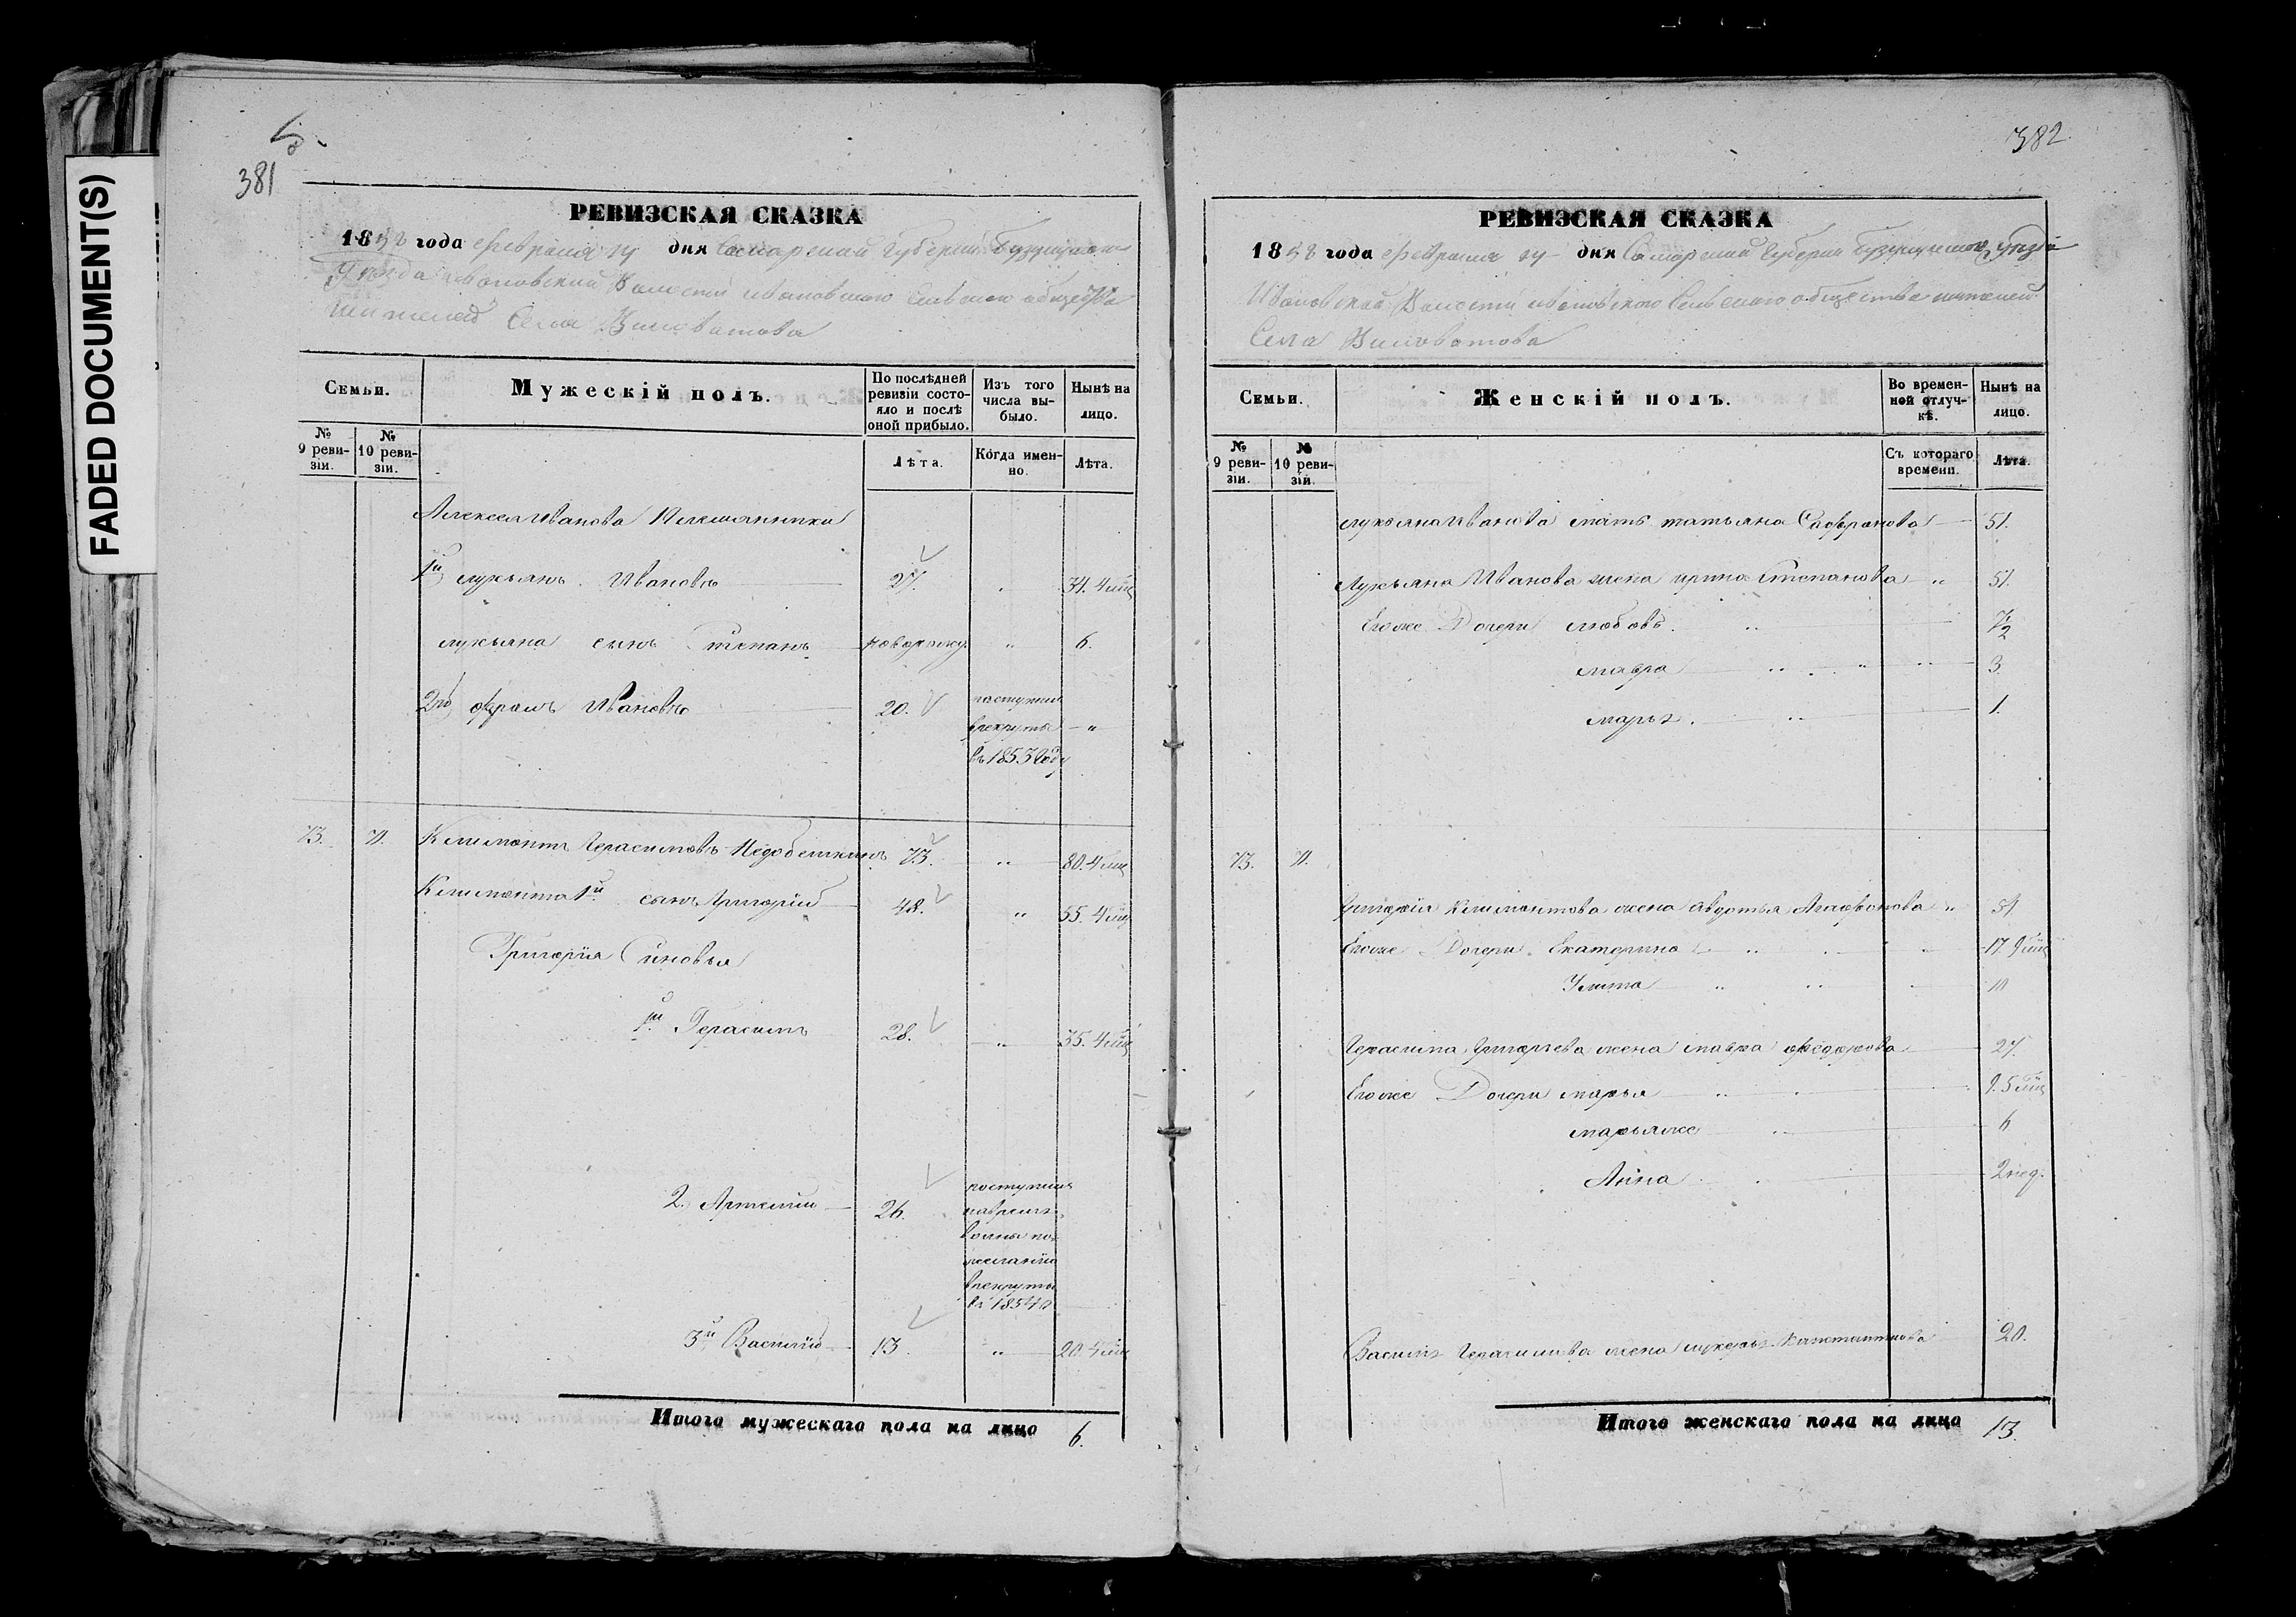 FADED DOCUMENT(S)
381
РЕВИЗСКАЯ СКАЗКА
1858 года февраля дня Самарской Губернии Бузулукск
Уезда Ивановской Волости Ивановского Сельского общества
жителей Села Виловатова
Семьи.
Мужескій полъ.
По послѣдней ревизіи состояло и послѣ оной прибыло.
Изъ того числа выбыло.
Нынѣ на лицо.
№ 9 ревизіи.
№ 10 ревизіи.
Лѣта.
Когда именно.
Лѣта.
Алексея Иванова Племянники
1й лукьянъ Ивановъ 27. 34. 4 мѣц
лукьяна сынъ Степанъ новорожд. " 6.
2й фролъ Ивановъ 20. поступил
врекруты "
въ 1853 году
73. 71. Климонтъ Герасимовъ Недобешкинъ 73. " 80. 4 мѣц
Климонта 1й сынъ Григорій 48. " 55. 4 мѣц
Григория Синовья
1й Герасимъ 28. " 35. 4 мѣц
2. Артемии 26. поступил
желанию
врекруты
въ 1854
3й Василии 13. " 20. 4 мѣц
Итого мужескаго пола на лицо 6.
382
РЕВИЗСКАЯ СКАЗКА
1858 года февраля дня Самарской Губернии Бузулукского уезда
Ивановской Волости Ивановского Сельского общества жителей
Села Виловатова
Семьи.
Женскій полъ.
Во временной отлучкѣ.
Нынѣ на лицо.
№ 9 ревизіи.
№ 10 ревизій.
Съ котораго времени.
Лѣта.
лукьяна Иванова мать татьяна Сафронова 51.
Лукьяна Иванова жена ирина Степанова " 51.
Егоже Дочери любовь.
мавра 3.
марья 1.
73. 71.
Григория Климонтова жена авдотья Агафонова "
Егоже Дочери Екатерина 17. 9 мѣц
Улита
Герасима Григорьева жена мавра федорова 27.
Егоже Дочери марья 9. 5 мѣц
марья же 6
Анна 2 нед.
Василья Герасимова жена лукерья Константинова 20.
Итого женскаго пола на лицо 13.